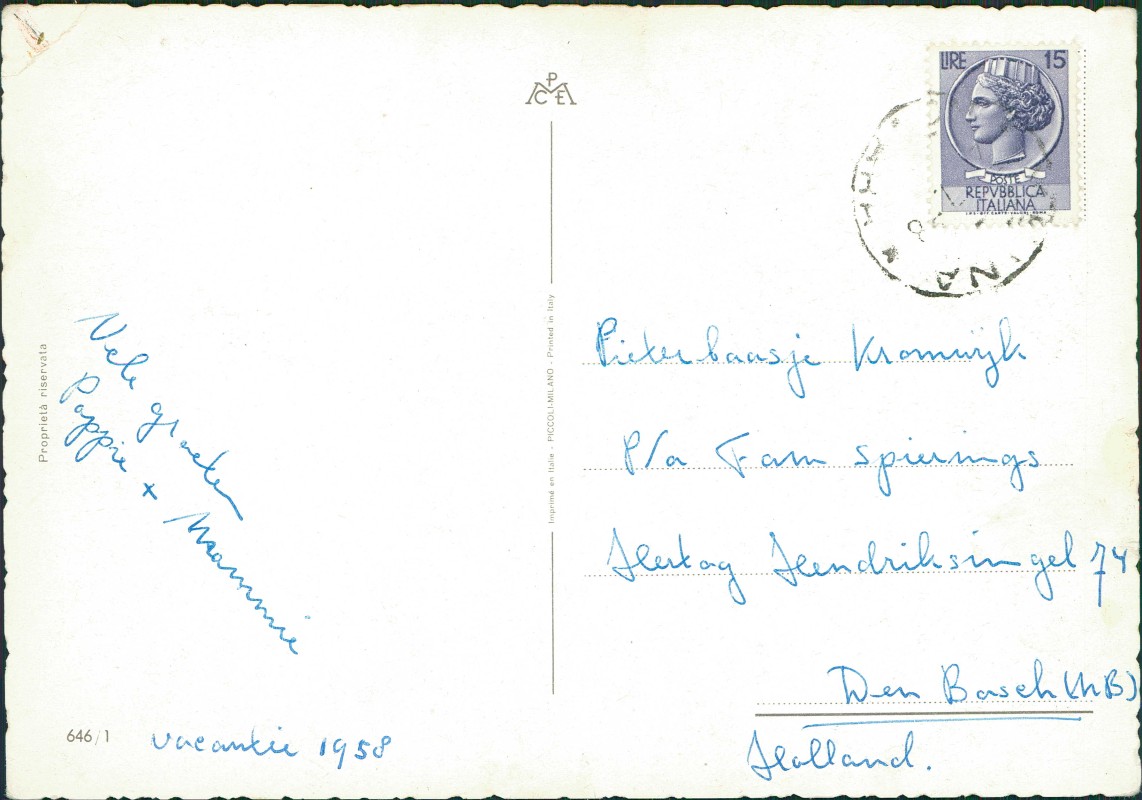 PMCE
LIRE 15
POSTE
REPVBBLICA
ITALIANA
I.P.S.-OFF. CARTE-VALORI-ROMA
Proprietà riservata
Imprimé en Italie - PICCOLI-MILANO - Printed in Italy
Vele groeten
Pappie x Mammie
646/1
vacantie 1958
Pieterbaasje Kromwijk
P/a Fam Spierings
Hertog Hendriksingel 74
Den Bosch (NB)
Holland.